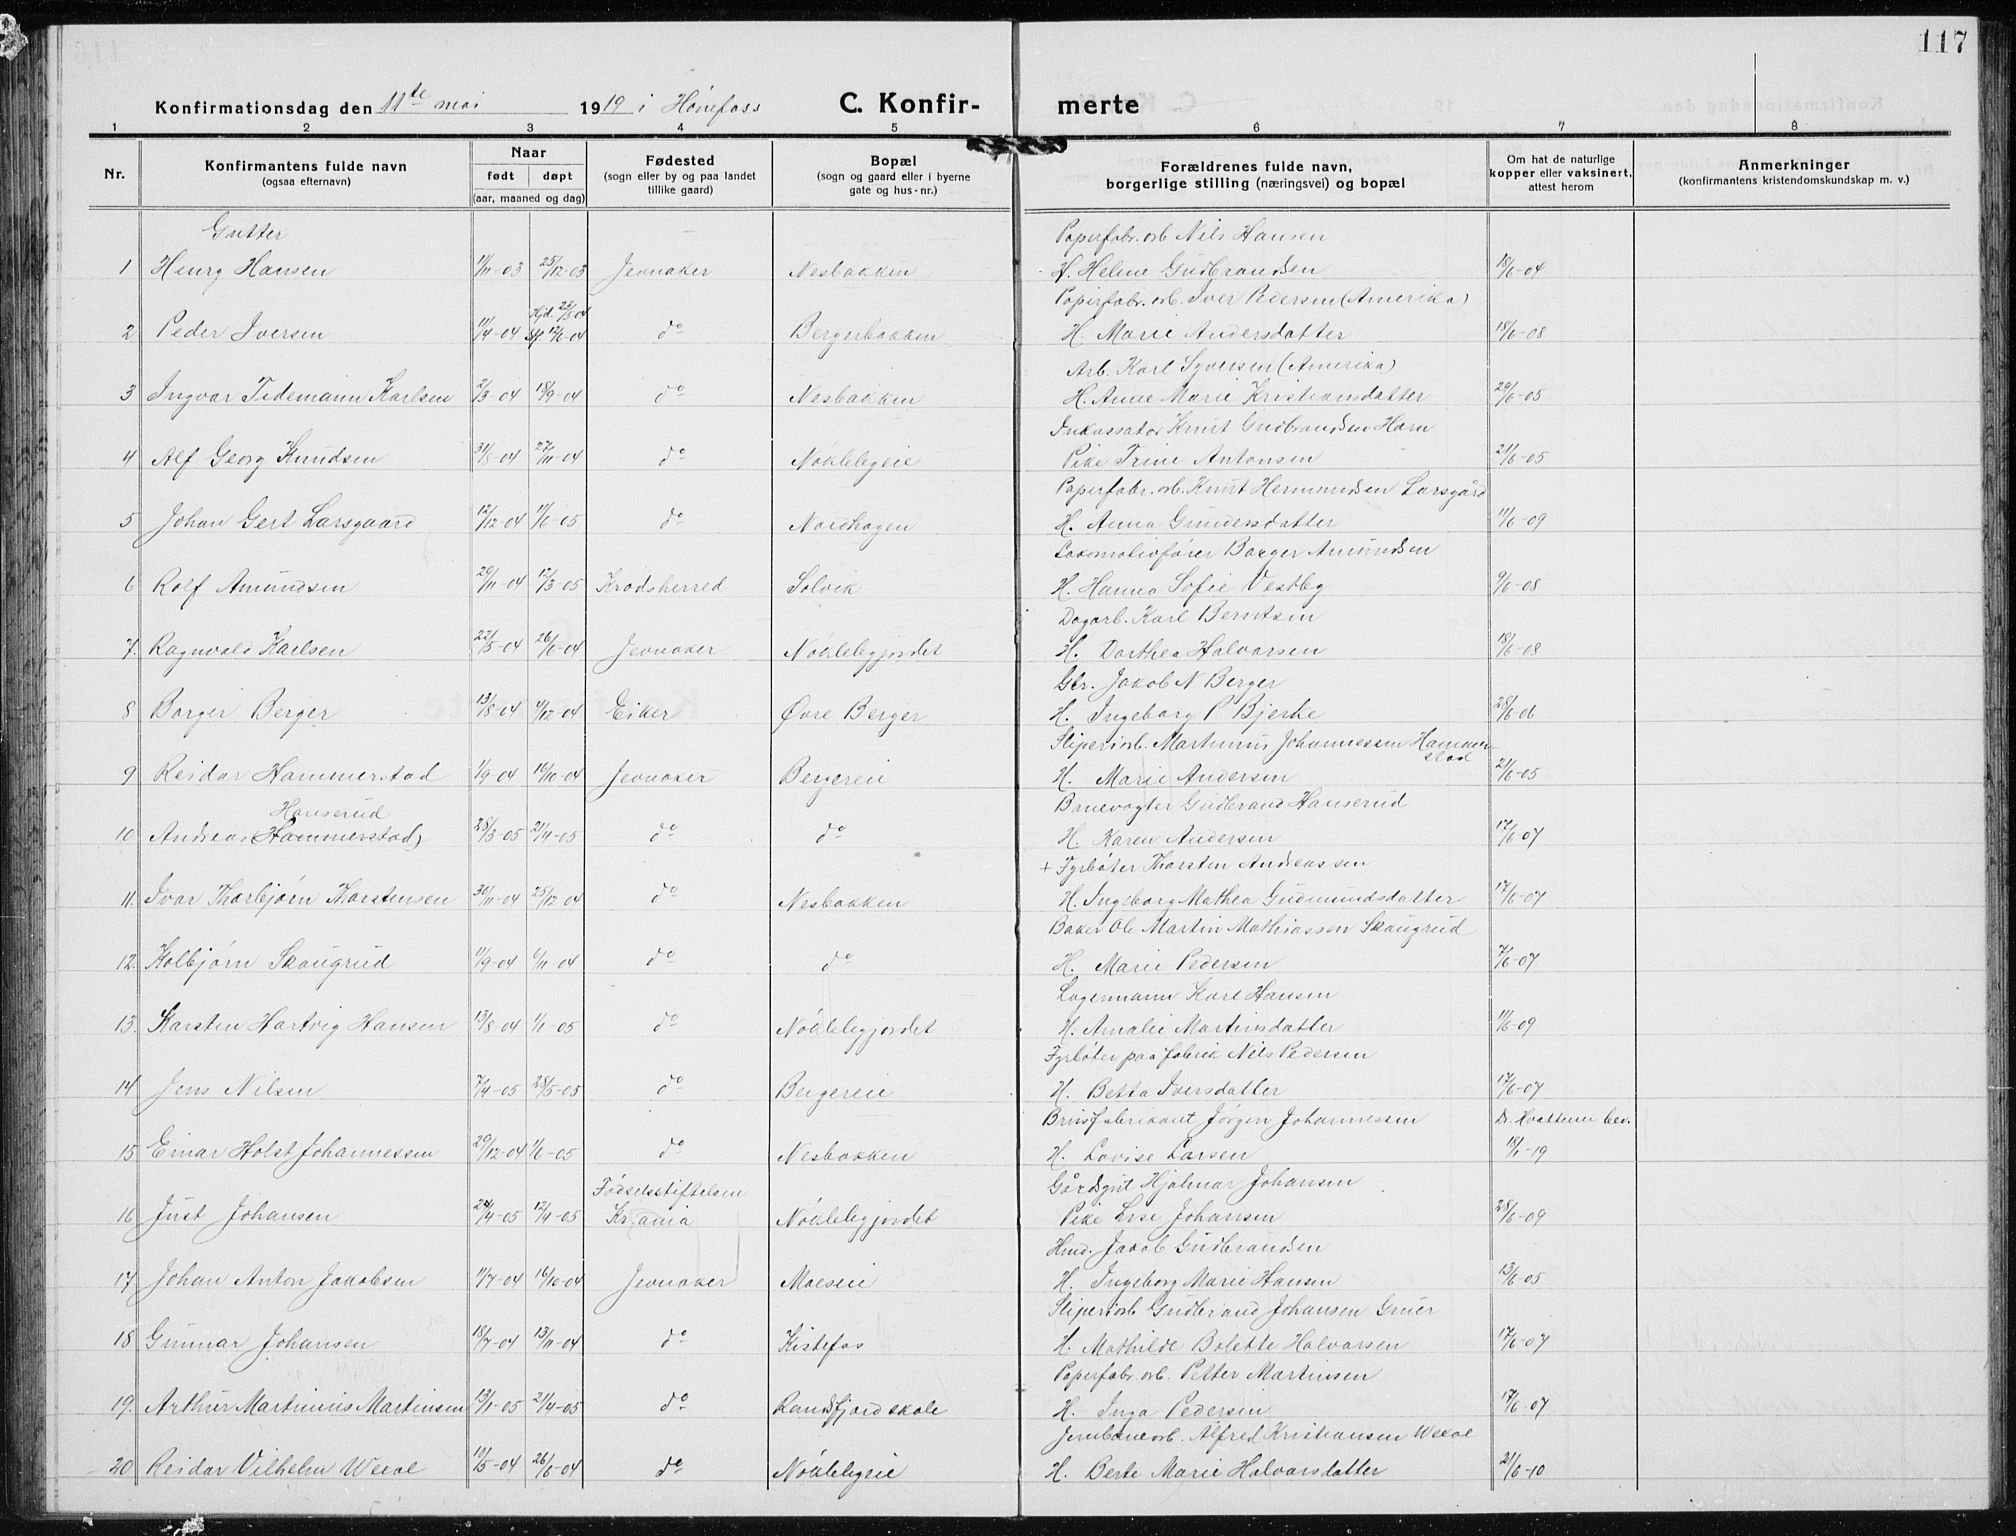 117
Konfirmationsdag den 11te mai 1919 i Hønefoss C. Konfir- merte
1 2 3 4 5 6 7 8
Nr. Konfirmantens fulde navn (ogsaa efternavn) Naar født døpt (aar, maaned og dag) Fødested (sogn eller by og paa landet tillike gaard) Bopæl (sogn og gaard eller i byerne gate og hus-nr.) Forældrenes fulde navn, borgerlige stilling (næringsvei) og bopæl Om hat de naturlige kopper eller vaksinert, attest herom Anmerkninger (konfirmantens kristendomskundskap m. v.)
Gutter Papirfabr.arb. Nils Hansen
1 Henry Hansen 1/11-03 25/12-03 Jevnaker Nesbakken H. Helene Gudbrandsen 18/6-04
Hjd. 23/5-04 Papirfabr.arb. Iver Pedersen (Amerika)
2 Peder Iversen 11/4-04 12/6-04 do Bergerbakken H. Marie Andersdatter 18/6-08
Arb. Karl Syversen (Amerika)
3 Ingvar Tidemann Karlsen 2/3-04 18/9-04 do Nesbakken H. Anne Marie Kristiansdatter 29/6-05
Inkassator Knut Gudbrandsen Horn
4 Alf Georg Knudsen 31/8-04 27/11-04 do Nøklebyeie Pike Trine Antonsen 21/6-05
Papirfabr.arb. Knut Hermundsen Larsgård
5 Johan Gert Larsgaard 12/12-04 11/6-05 do Nordhagen H. Anna Gundersdatter 11/6-09
Lokomotivfører Borger Amundsen
6 Rolf Amundsen 29/11-04 12/3-05 Krødsherred Solvik H. Hanna Sofie Vestby 9/6-08
Dagarb. Karl Berntsen
7. Ragnvald Karlsen 22/5-04 26/6-04 Jevnaker Nøklebygjordet H. Dorthea Halvorsen 18/6-08
Gbr. Jakob N Berger
8 Borger Berger 13/8-04 4/12-04 Eiker Øvre Berger H. Ingeborg P. Bjerke 28/6-06
Sliperiarb. Martinius Johannessen Hammerstad
9 Reidar Hammerstad 1/9-04 16/10-04 Jevnaker Bergereie H. Marie Andersen 21/6-05
Hanserud Banevogter Gudbrand Hanserud
10 Andreas (Hammerstad) 28/3-05 21/4-05 do do H. Karen Andersen 17/6-07
+ Fyrbøter Thorsten Andreassen
11. Ivar Thorbjørn Torstensen 30/11-04 25/12-04 do Nesbakken H. Ingeborg Mathea Gudmundsdatter 17/6-07
Baker Ole Martin Mathiassen Skaugrud
12. Kolbjørn Skaugrud 11/9-04 6/11-04 do do H. Marie Pedersen 7/6-07
Lagermann Karl Hansen
13. Karsten Hartvig Hansen 13/8-04 1/1-05 do Nøklebygjordet H. Amalie Martinsdatter 11/6-09
Fyrbøter paa fabrik Nils Pedersen
14 Jens Nilsen 7/4-05 28/5-05 do Bergereie H. Betta Iversdatter 17/6-07
Brusfabrikant Jørgen Johannessen Dr. Hvattum bev.
15 Einar Holst Johannessen 20/12-04 1/6-05 do Nesbakken H. Lovise Larsen 18/1-19
Fødselsstiftelsen Gårdsgut Hjalmar Johansen
16 Just Johansen 24/4-05 12/4-05 Kr.ania Nøklebygjordet Pike Lise Johansen 28/6-09
Hmd. Jakob Gudbrandsen
17 Johan Anton Jakobsen 11/7-04 16/10-04 Jevnaker Moeseie H. Ingeborg Marie Hansen 13/6-05
Sliperiarb Gudbrand Johansen Gruer
18 Gunnar Johansen 18/7-04 13/11-04 do Kistefos H. Mathilde Bolette Halvorsen 17/6-07
Papirfabr.arb. Petter Martinsen
19. Arthur Martinius Martinsen 13/1-05 21/4-05 do Randsfjord skole H. Inga Pedersen 17/6-07
Jernbanearb. Alfred Kristiansen Wexal
20 Reidar Vilhelm Wexal 19/5-04 26/6-04 do Nøklebyeie H. Berte Marie Halvorsdatter 21/6-10